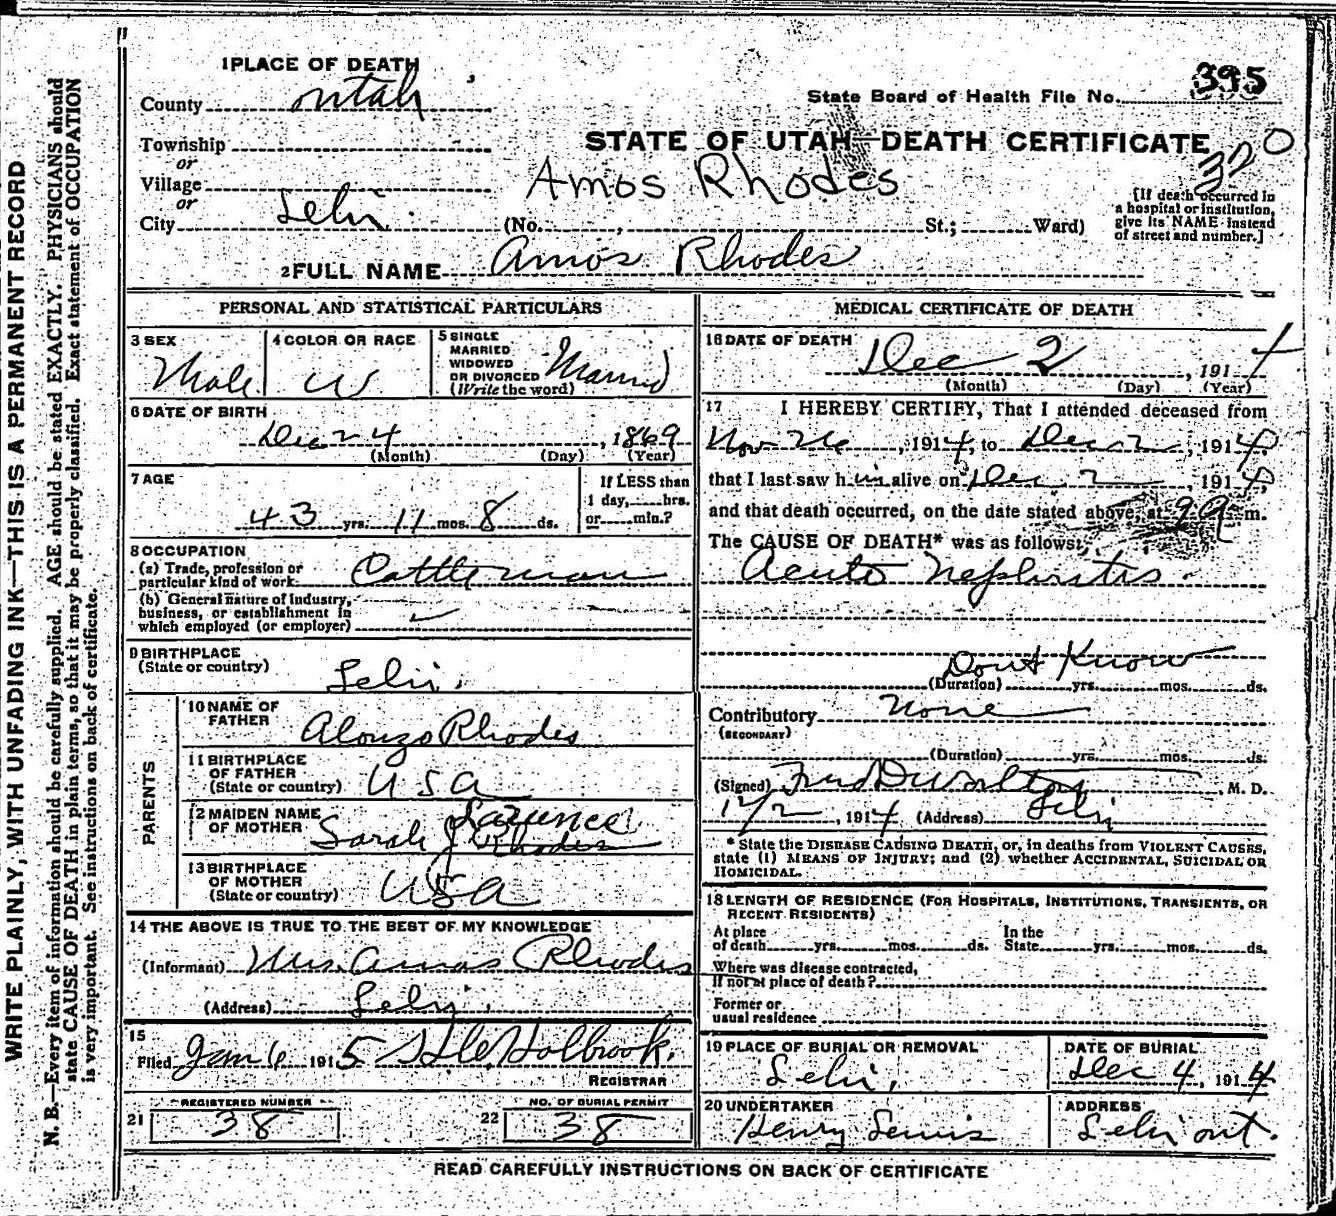 1 PLACE OF DEATH
County utah
State Board of Health File No. 395
Township
or
STATE OF UTAH—DEATH CERTIFICATE
320
Village
Amos Rhodes
or
City Lehi.
(No. , St.; Ward)
[If death occurred in
a hospital or institution,
give its NAME instead
of street and number.]
2 FULL NAME Amos Rhodes
PERSONAL AND STATISTICAL PARTICULARS
3 SEX
Male
4 COLOR OR RACE
W
5 SINGLE
MARRIED
WIDOWED
OR DIVORCED
(Write the word)
Married
6 DATE OF BIRTH
Dec 24, 1869
(Month) (Day) (Year)
7 AGE
43 yrs. 11 mos. 8 ds.
If LESS than
1 day, hrs.
or min.?
8 OCCUPATION
(a) Trade, profession or
particular kind of work Cattleman
(b) General nature of industry,
business, or establishment in
which employed (or employer)
9 BIRTHPLACE
(State or country)
Lehi.
PARENTS
10 NAME OF
FATHER
Alonzo Rhodes
11 BIRTHPLACE
OF FATHER
(State or country)
USA
12 MAIDEN NAME
OF MOTHER
Sarah J Rhodes
13 BIRTHPLACE
OF MOTHER
(State or country)
USA
14 THE ABOVE IS TRUE TO THE BEST OF MY KNOWLEDGE
(Informant) Mrs. Amos Rhodes
(Address) Lehi.
15
Filed Jan 6 1915 Holbrook.
REGISTRAR
REGISTERED NUMBER
21 38
NO. OF BURIAL PERMIT
22 38
MEDICAL CERTIFICATE OF DEATH
16 DATE OF DEATH
Dec 2, 1914
(Month) (Day) (Year)
17 I HEREBY CERTIFY, That I attended deceased from
Nov 26, 1914, to Dec 2, 1914,
that I last saw him alive on Dec 2, 1914,
and that death occurred, on the date stated above, at m.
The CAUSE OF DEATH* was as follows:
Acute Nephritis
Dont Know
(Duration) yrs. mos. ds.
Contributory None
(SECONDARY)
(Duration) yrs. mos. ds.
(Signed) Fred D Worlton, M. D.
12/2, 1914 (Address) Lehi
* State the DISEASE CAUSING DEATH, or, in deaths from VIOLENT CAUSES,
state (1) MEANS OF INJURY; and (2) whether ACCIDENTAL, SUICIDAL OR
HOMICIDAL.
18 LENGTH OF RESIDENCE (FOR HOSPITALS, INSTITUTIONS, TRANSIENTS, OR
RECENT RESIDENTS)
At place
of death yrs. mos. ds.
In the
State yrs. mos. ds.
Where was disease contracted,
If not at place of death?
Former or
usual residence
19 PLACE OF BURIAL OR REMOVAL
Lehi,
DATE OF BURIAL
Dec 4, 1914
20 UNDERTAKER
Henry Lewis
ADDRESS
Lehi ut.
READ CAREFULLY INSTRUCTIONS ON BACK OF CERTIFICATE
WRITE PLAINLY, WITH UNFADING INK—THIS IS A PERMANENT RECORD
N. B.—Every item of information should be carefully supplied. AGE should be stated EXACTLY. PHYSICIANS should
state CAUSE OF DEATH in plain terms, so that it may be properly classified. Exact statement of OCCUPATION
is very important. See instructions on back of certificate.